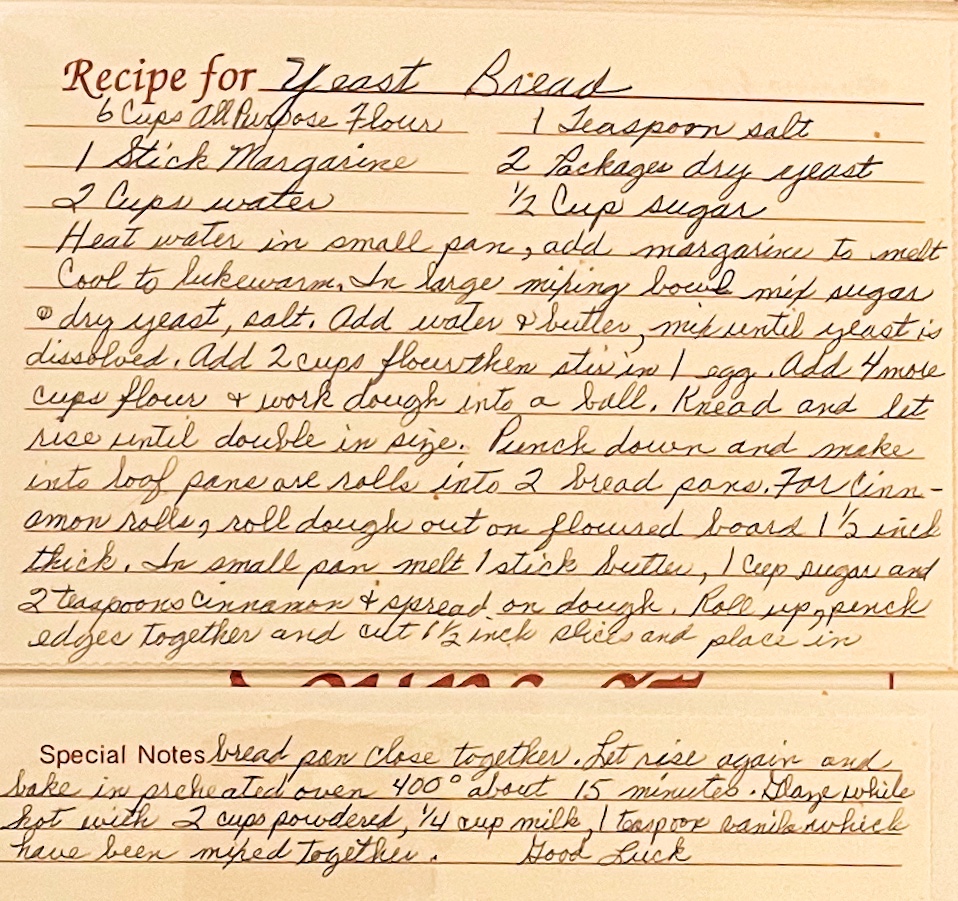 Recipe for Yeast Bread
6 Cups All Purpose Flour 1 Teaspoon salt
1 Stick Margarine 2 Packages dry yeast
2 Cups water 1/2 Cup sugar
Heat water in small pan, add margarine to melt
Cool to lukewarm. In large mixing bowl mix sugar
dry yeast, salt. Add water & butter, mix until yeast is
dissolved. Add 2 cups flour then stir in 1 egg. Add 4 more
cups flour & work dough into a ball. Knead and let
rise until double in size. Punch down and make
into loaf pans are rolls into 2 bread pans. For Cinn-
amon rolls, roll dough out on floured board 1 1/2 inch
thick. In small pan melt 1 stick butter, 1 Cup sugar and
2 teaspoons cinnamon & spread on dough. Roll up, pinch
edges together and cut 1 1/2 inch slices and place in
Special Notes bread pan close together. Let rise again and
bake in preheated oven 400° about 15 minutes. Glaze while
hot with 2 cups powdered, 1/4 cup milk, 1 teaspoon vanilla which
have been mixed together. Good Luck